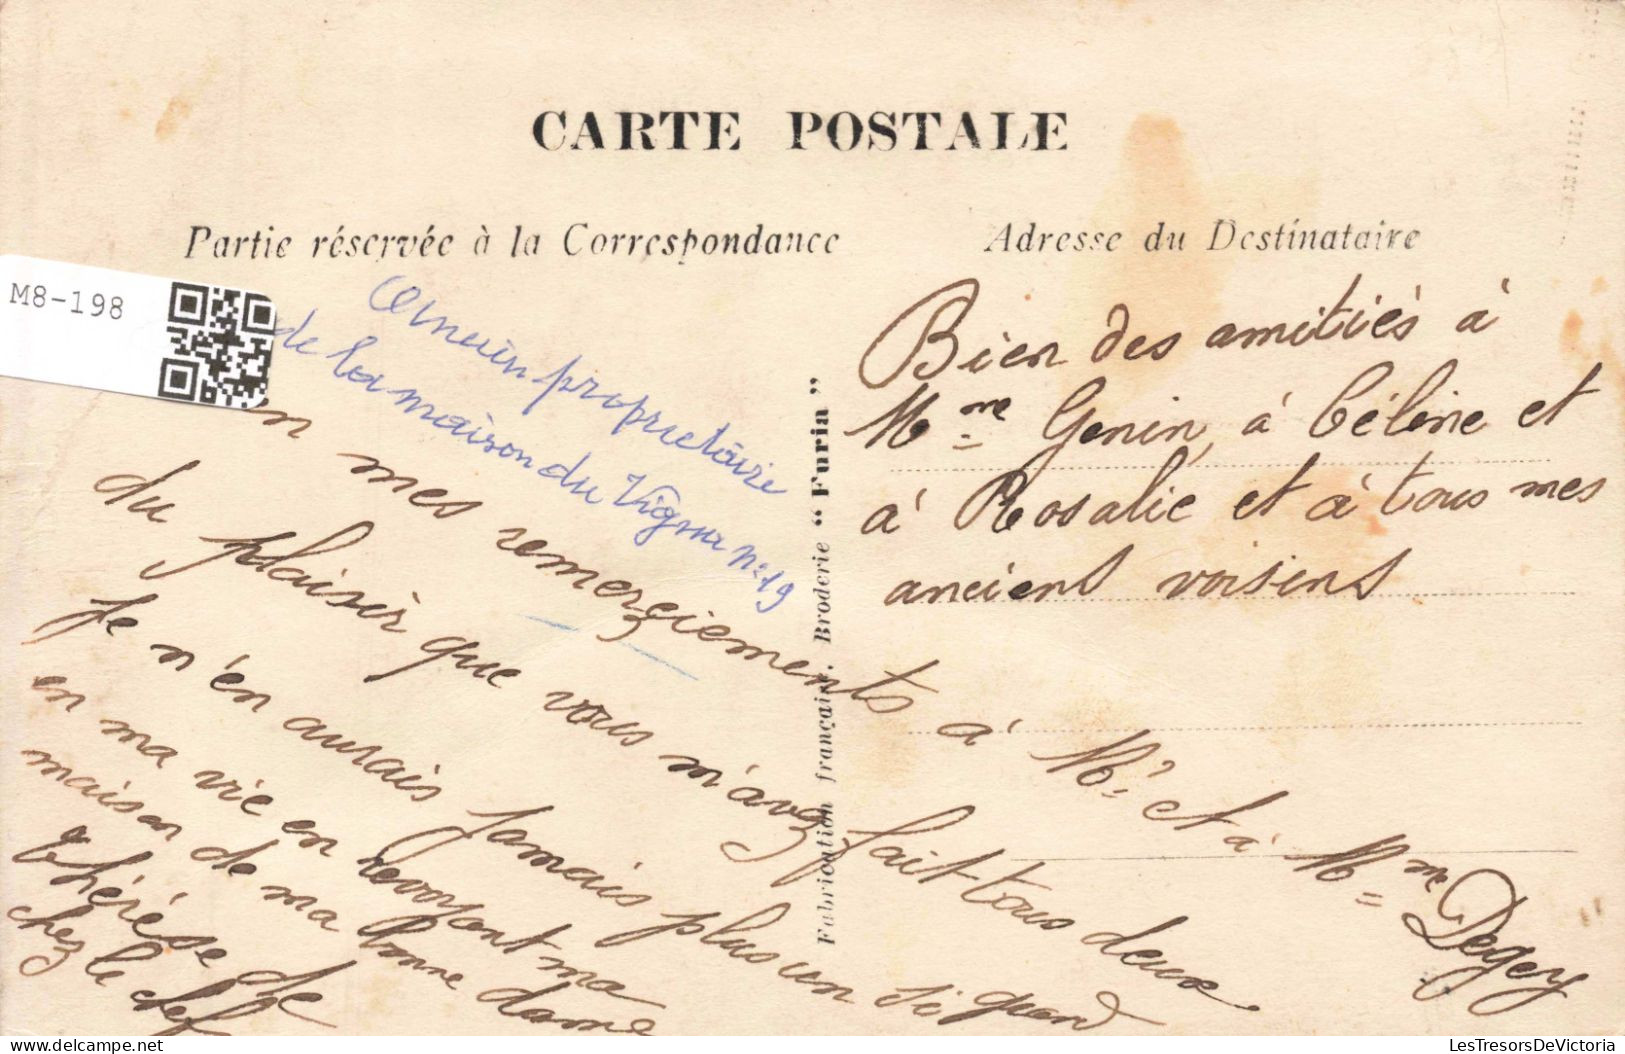 CARTE POSTALE
Partie réservée à la Correspondance
Adresse du Destinataire
M8-198
Ancien propriétaire
de la maison du Vignu n° 19
Bien des amitiés à
Mme Genin, à Céline et
à Rosalie et à tous mes
anciens voisins
mes remerziements à Mr et à Mme Degey
du plaisir que vous m'avez fait tous deux
Je n'en aurais jamais plus un si grand
en ma vie en revoyant ma
maison de ma bonne dame
Thérèse de
chez le chef
Fabrication française. Broderie "Furia"
LesTresorsDeVictoria
delcampe.net